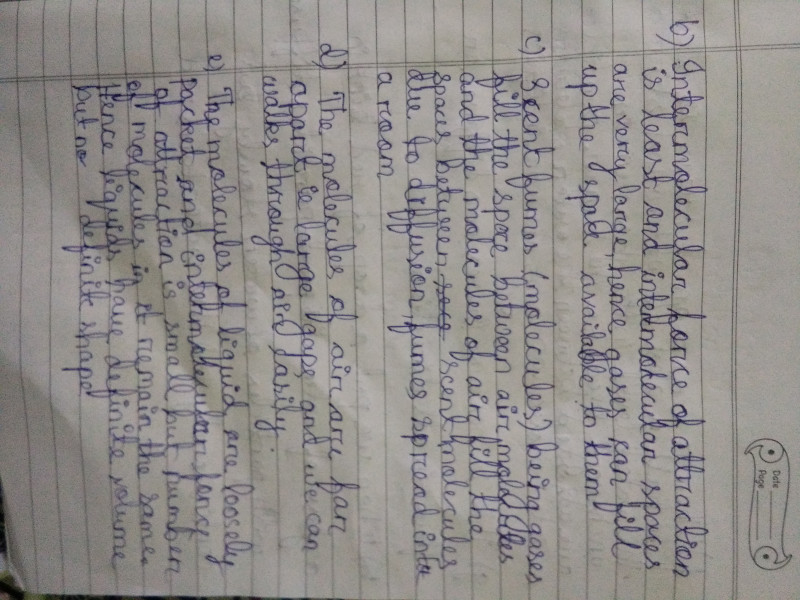 Date
Page
b) Intermolecular force of attraction
is least and intermolecular spaces
are very large, hence gases can fill
up the space available to them
c) Scent fumes (molecules) being gases
fill the space between air molecules
and the molecules of air fill the
space between scent molecules
due to diffusion, fumes spread into
a room
d) The molecules of air are far
appart ie large gaps and we can
walks through air easily.
e) The molecules of liquid are loosely
packet and intermolecular force
of attraction is small but number
of molecules in it remain the same.
Hence liquids have definite volume
but no definite shape